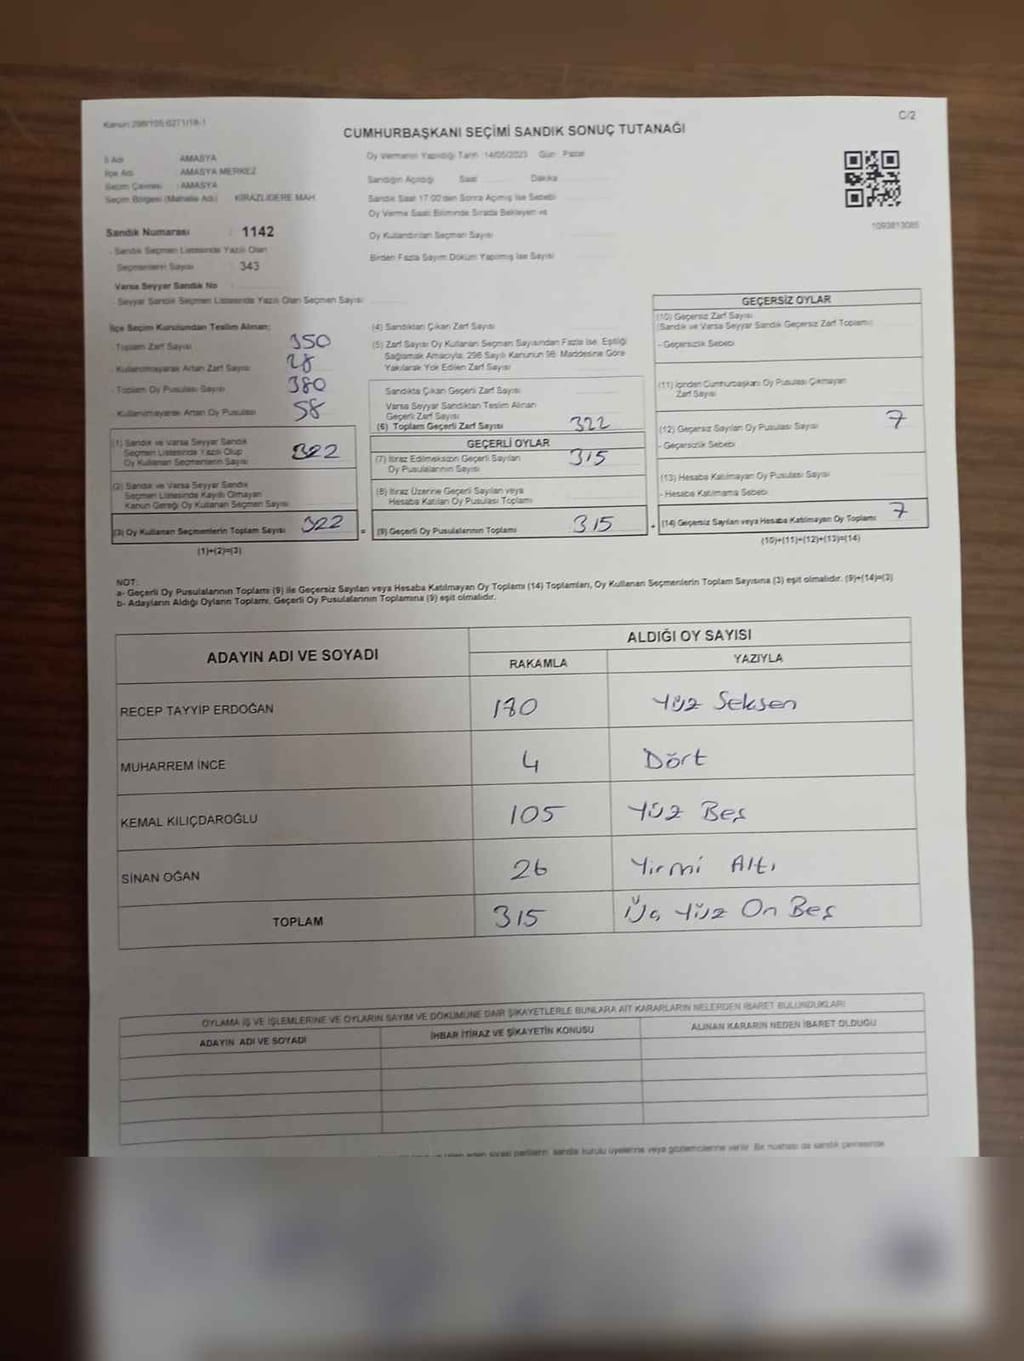 Kanun:298/105.0271/18-1
C/2
CUMHURBAŞKANI SEÇİMİ SANDIK SONUÇ TUTANAĞI
İl Adı AMASYA
İlçe Adı AMASYA MERKEZ
Seçim Çevresi : AMASYA
Seçim Bölgesi (Mahalle Adı) KİRAZLIDERE MAH.
Sandık Numarası : 1142
- Sandık Seçmen Listesinde Yazılı Olan
Seçmenlerin Sayısı 343
Varsa Seyyar Sandık No
- Seyyar Sandık Seçmen Listesinde Yazılı Olan Seçmen Sayısı
Oy Vermenin Yapıldığı Tarih :14/05/2023 Gün : Pazar
Sandığın Açıldığı Saat Dakika
Sandık Saat 17:00'den Sonra Açılmış İse Sebebi
Oy Verme Saati Bitiminde Sırada Bekleyen ve
Oy Kullandırılan Seçmen Sayısı
Birden Fazla Sayım Döküm Yapılmış İse Sayısı
1093813085
İlçe Seçim Kurulundan Teslim Alınan;
- Toplam Zarf Sayısı 350
- Kullanılmayarak Artan Zarf Sayısı 28
- Toplam Oy Pusulası Sayısı 380
- Kullanılmayarak Artan Oy Pusulası 58
(1) Sandık ve Varsa Seyyar Sandık
Seçmen Listesinde Yazılı Olup
Oy Kullanan Seçmenlerin Sayısı 322
(2) Sandık ve Varsa Seyyar Sandık
Seçmen Listesinde Kayıtlı Olmayan
Kanun Gereği Oy Kullanan Seçmen Sayısı
(3) Oy Kullanan Seçmenlerin Toplam Sayısı 322 =
(1)+(2)=(3)
(4) Sandıktan Çıkan Zarf Sayısı
(5) Zarf Sayısı Oy Kullanan Seçmen Sayısından Fazla İse, Eşitliği
Sağlamak Amacıyla, 298 Sayılı Kanunun 98. Maddesine Göre
Yakılarak Yok Edilen Zarf Sayısı
Sandıkta Çıkan Geçerli Zarf Sayısı
Varsa Seyyar Sandıktan Teslim Alınan
Geçerli Zarf Sayısı
(6) Toplam Geçerli Zarf Sayısı 322
GEÇERLİ OYLAR
(7) İtiraz Edilmeksizin Geçerli Sayılan
Oy Pusulalarının Sayısı 315
(8) İtiraz Üzerine Geçerli Sayılan veya
Hesaba Katılan Oy Pusulası Toplamı
(9) Geçerli Oy Pusulalarının Toplamı 315 +
GEÇERSİZ OYLAR
(10) Geçersiz Zarf Sayısı
(Sandık ve Varsa Seyyar Sandık Geçersiz Zarf Toplamı)
- Geçersizlik Sebebi
(11) İçinden Cumhurbaşkanı Oy Pusulası Çıkmayan
Zarf Sayısı
(12) Geçersiz Sayılan Oy Pusulası Sayısı 7
- Geçersizlik Sebebi
(13) Hesaba Katılmayan Oy Pusulası Sayısı
- Hesaba Katılmama Sebebi
(14) Geçersiz Sayılan veya Hesaba Katılmayan Oy Toplamı 7
(10)+(11)+(12)+(13)=(14)
NOT:
a- Geçerli Oy Pusulalarının Toplamı (9) ile Geçersiz Sayılan veya Hesaba Katılmayan Oy Toplamı (14) Toplamları, Oy Kullanan Seçmenlerin Toplam Sayısına (3) eşit olmalıdır. (9)+(14)=(3)
b- Adayların Aldığı Oyların Toplamı, Geçerli Oy Pusulalarının Toplamına (9) eşit olmalıdır.
ADAYIN ADI VE SOYADI
ALDIĞI OY SAYISI
RAKAMLA YAZIYLA
RECEP TAYYİP ERDOĞAN 180 Yüz Seksen
MUHARREM İNCE 4 Dört
KEMAL KILIÇDAROĞLU 105 Yüz Beş
SİNAN OĞAN 26 Yirmi Altı
TOPLAM 315 Üç Yüz On Beş
OYLAMA İŞ VE İŞLEMLERİNE VE OYLARIN SAYIM VE DÖKÜMÜNE DAİR ŞİKAYETLERLE BUNLARA AİT KARARLARIN NELERDEN İBARET BULUNDUKLARI
ADAYIN ADI VE SOYADI İHBAR İTİRAZ VE ŞİKAYETİN KONUSU ALINAN KARARIN NEDEN İBARET OLDUĞU
eden siyasi partilerin sandık kurulu üyelerine veya gözlemcilerine verilir. Bir nüshası da sandık çevresinde